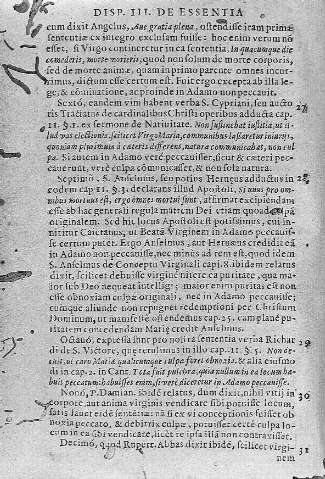 DISP. III. DE ESSENTIA
cum dixit Angelus, Aue gratia plena, ostendisse iram primæ
sententiæ ex integro exclusam fuisse: hoc enim verum nõ
esset, si Virgo contineretur in ea sententia. In quacunque die
comederis, morte morieris, quod non solum de morte corporis,
sed de morte animæ, quam in primo parente omnes incur-
rimus, dictum esse certum est. Fuit ergo excepta ab illa le-
ge, & cõminatione, ac proinde in Adamo non peccauit.
Sextó, eandem vim habent verba S. Cypriani, seu aucto
ris Tractatus de cardinalibus Christi operibus adducta cap.
11. §. 1. ex sermone de Natiuitate. Non sustinebat iustitia, ut il-
lud vas electionis, scilicet Virgo Maria, communibus lassaretur iniurijs,
quoniam plurimum à cæteris differens, natura communicabat, non cul
pa. Si autem in Adamo veré peccauisset, sicut & cæteri pec-
cauerunt, veré culpa communicasset, & non sola natura.
27
Septimò, S. Anselmus, seu potius Herueus adductus in
eodem cap. 11. §. 1. declarans illud Apostoli, Si unus pro om-
nibus mortuus est, ergo omnes mortui sunt, affirmat excipiendam
esse ab hac generali regula matrem Dei etiam quoad culpã
originalem. Sed hic locus Apostoli est potissimus, cui in-
nititur Caietanus, ut Beatã Virginem in Adamo peccauis-
se certum putet. Ergo Anselmus, aut Herueus credidit eã
in Adamo non peccauisse, nec minus ad rem est, quod idem
S. Anselmus de Conceptu Virginali cap. 18. ibidem relatus
dixit, scilicet debuisse virginé nitere ea puritate, qua ma-
ior sub Deo nequeat intelligi; maior enim puritas est non
esse obnoxiam culpæ originali, nec in Adamo peccauisse;
cumque aliunde non repugnet redemptioni per Christum
Dominum, ut manifesté ostendemus cap. 25. eam plané pu-
ritatem concedendam Mariæ credit Anselmus.
28
Octauò, expressa sunt pro nostra sententia verba Richar
di de S. Victore, quæ retulimus in illo cap. 11. §. 1. Non de-
cuit, ut caro Mariæ qualicunque culpa foret obnoxia. & alia eiusdem
in cap. 2. in Cant. Tota fuit pulchra, quia nullum in ea locum ha-
buit peccatum; habuisset enim, si veré diceretur in Adamo peccauisse.
29
Nonò, P. Damian. ibidẽ relatus, dum dixit, nihil vitij in
corpore, aut anima virginis vendicare sibi potuisse locum,
satis fauet eidẽ sententiæ: nã si ex vi conceptionis fuisset ob
noxia peccato, & debitrix culpæ, potuisset certé culpa lo-
cum in ea sibi vendicare, licet re ipsa illã non contraxisset.
30
Decimò, quod Rupert. Abbas dixit ibidẽ, scilicet virgi-
31
nem